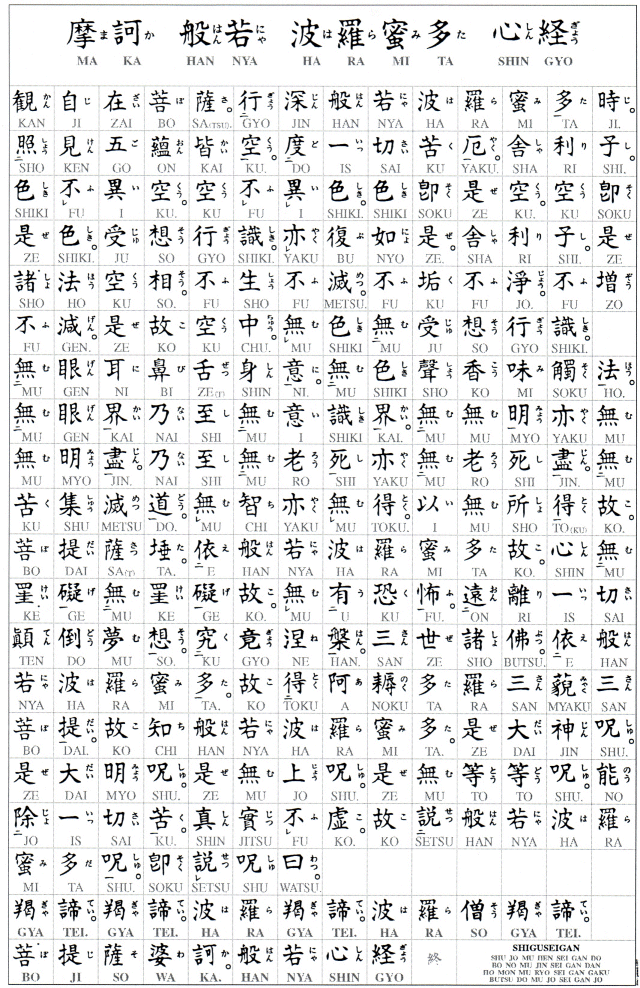 摩ま 訶か 般はん 若にゃ 波は 羅ら 蜜み 多た 心しん 経ぎょう
MA KA HAN NYA HA RA MI TA SHIN GYO
観かん 自じ 在ざい 菩ぼ 薩さ。 行ぎょう 深じん 般はん 若にゃ 波は 羅ら 蜜み 多た 時じ。
KAN JI ZAI BO SA(TSU). GYO JIN HAN NYA HA RA MI TA JI.
照しょう 見けん 五ご 蘊おん 皆かい 空くう。 度ど 一いっ 切さい 苦く 厄やく。 舎しゃ 利り 子し。
SHO KEN GO ON KAI KU. DO IS SAI KU YAKU. SHA RI SHI.
色しき 不ふ 異い 空くう。 空くう 不ふ 異い 色しき。 色しき 卽そく 是ぜ 空くう。 空くう 卽そく
SHIKI FU I KU. KU FU I SHIKI. SHIKI SOKU ZE KU. KU SOKU
是ぜ 色しき。 受じゅ 想そう 行ぎょう 識しき。 亦やく 復ぶ 如にょ 是ぜ。 舎しゃ 利り 子し。 是ぜ
ZE SHIKI. JU SO GYO SHIKI. YAKU BU NYO ZE. SHA RI SHI. ZE
諸しょ 法ほう 空くう 相そう。 不ふ 生しょう 不ふ 滅めつ。 不ふ 垢く 不ふ 淨じょう。 不ふ 増ぞう
SHO HO KU SO. FU SHO FU METSU. FU KU FU JO. FU ZO
不ふ 減げん。 是ぜ 故こ 空くう 中ちゅう。 無む 色しき 無む 受じゅ 想そう 行ぎょう 識しき。
FU GEN. ZE KO KU CHU. MU SHIKI MU JU SO GYO SHIKI.
無む 眼げん 耳に 鼻び 舌ぜつ 身しん 意に。 無む 色しき 聲しょう 香こう 味み 觸そく 法ほう。
MU GEN NI BI ZE(T) SHIN NI. MU SHIKI SHO KO MI SOKU HO.
無む 眼げん 界かい 乃ない 至し 無む 意い 識しき 界かい。 無む 無む 明みょう 亦やく 無む
MU GEN KAI NAI SHI MU I SHIKI KAI. MU MU MYO YAKU MU
無む 明みょう 盡じん。 乃ない 至し 無む 老ろう 死し 亦やく 無む 老ろう 死し 盡じん。 無む
MU MYO JIN. NAI SHI MU RO SHI YAKU MU RO SHI JIN. MU
苦く 集しゅう 滅めつ 道どう。 無む 智ち 亦やく 無む 得とく。 以い 無む 所しょ 得とく 故こ。
KU SHU METSU DO. MU CHI YAKU MU TOKU. I MU SHO TO(KU) KO.
菩ぼ 提だい 薩さつ 埵た。 依え 般はん 若にゃ 波は 羅ら 蜜み 多た 故こ。 心しん 無む
BO DAI SA(T) TA. E HAN NYA HA RA MI TA KO. SHIN MU
罣けい 礙げ 無む 罣けい 礙げ 故こ。 無む 有う 恐く 怖ふ。 遠おん 離り 一いっ 切さい
KE GE MU KE GE KO. MU U KU FU. ON RI IS SAI
顚てん 倒どう 夢む 想そう。 究く 竟ぎょう 涅ね 槃はん。 三さん 世ぜ 諸しょ 佛ぶつ。 依え 般はん
TEN DO MU SO. KU GYO NE HAN. SAN ZE SHO BUTSU. E HAN
若にゃ 波は 羅ら 蜜み 多た。 故こ 得とく 阿あ 耨のく 多た 羅ら 三さん 藐みゃく 三さん
NYA HA RA MI TA. KO TOKU A NOKU TA RA SAN MYAKU SAN
菩ぼ 提だい。 故こ 知ち 般はん 若にゃ 波は 羅ら 蜜み 多た。 是ぜ 大だい 神じん 呪しゅ。
BO DAI. KO CHI HAN NYA HA RA MI TA. ZE DAI JIN SHU.
是ぜ 大だい 明みょう 呪しゅ。 是ぜ 無む 上じょう 呪しゅ。 是ぜ 無む 等とう 等どう 呪しゅ。 能のう
ZE DAI MYO SHU. ZE MU JO SHU. ZE MU TO TO SHU. NO
除じょ 一いっ 切さい 苦く。 真しん 實じつ 不ふ 虚こ。 故こ 説せつ 般はん 若にゃ 波は 羅ら
JO IS SAI KU. SHIN JITSU FU KO. KO SETSU HAN NYA HA RA
蜜み 多た 呪しゅ。 卽そく 説せつ 呪しゅ 曰わつ。
MI TA SHU. SOKU SETSU SHU WATSU.
羯ぎゃ 諦てい。 羯ぎゃ 諦てい。 波は 羅ら 羯ぎゃ 諦てい。 波は 羅ら 僧そう 羯ぎゃ 諦てい。
GYA TEI. GYA TEI. HA RA GYA TEI. HA RA SO GYA TEI.
菩ぼ 提じ 薩そ 婆わ 訶か。 般はん 若にゃ 心しん 経ぎょう 終
BO JI SO WA KA. HAN NYA SHIN GYO
SHIGUSEIGAN
SHU JO MU HEN SEI GAN DO
BO NO MU JIN SEI GAN DAN
HO MON MU RYO SEI GAN GAKU
BUTSU DO MU JO SEI GAN JO